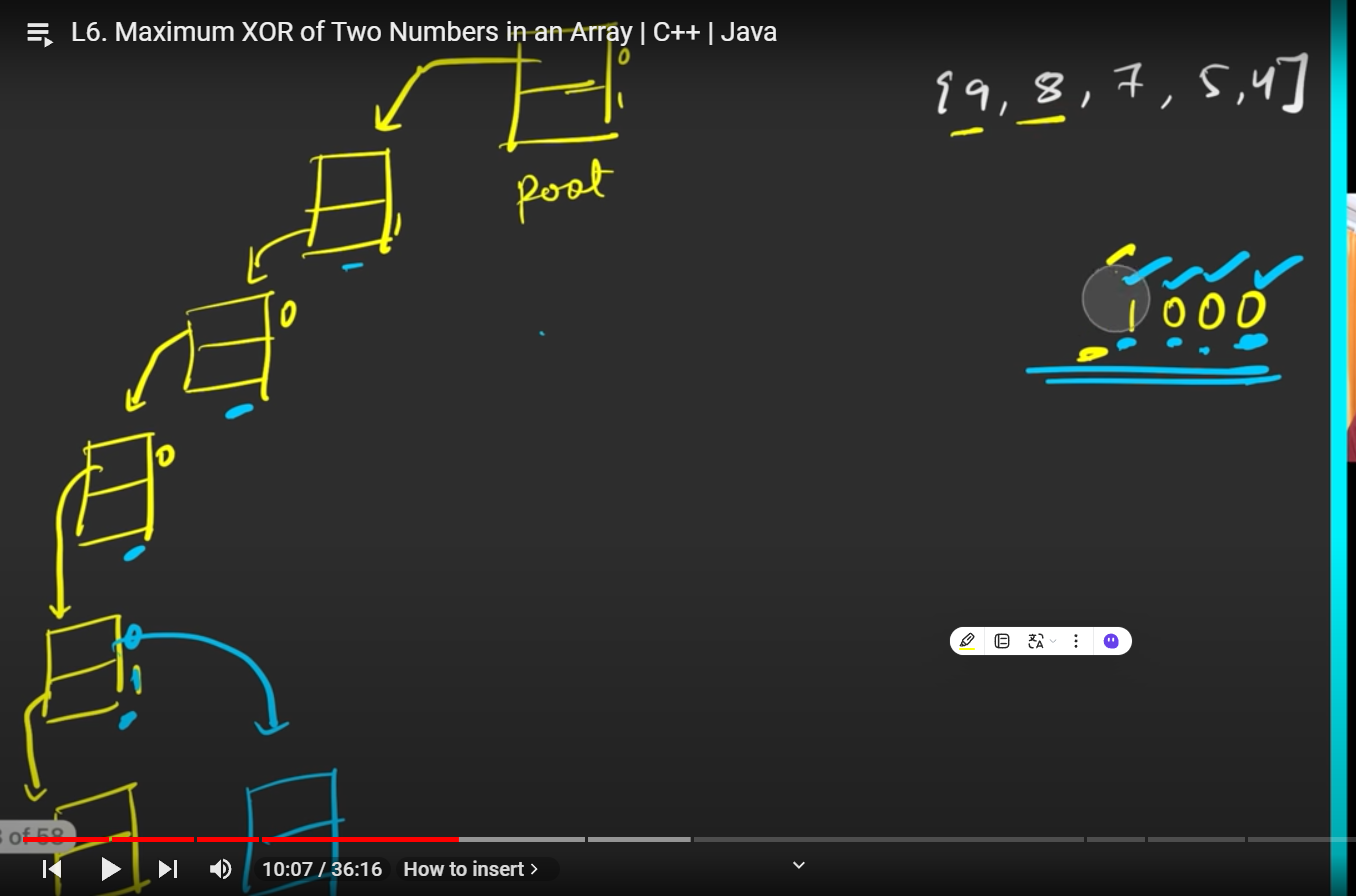 L6. Maximum XOR of Two Numbers in an Array | C++ | Java
0
1
{9, 8, 7, 5, 4]
Root
1
1000
0
0
0
1
of 58
10:07 / 36:16 How to insert